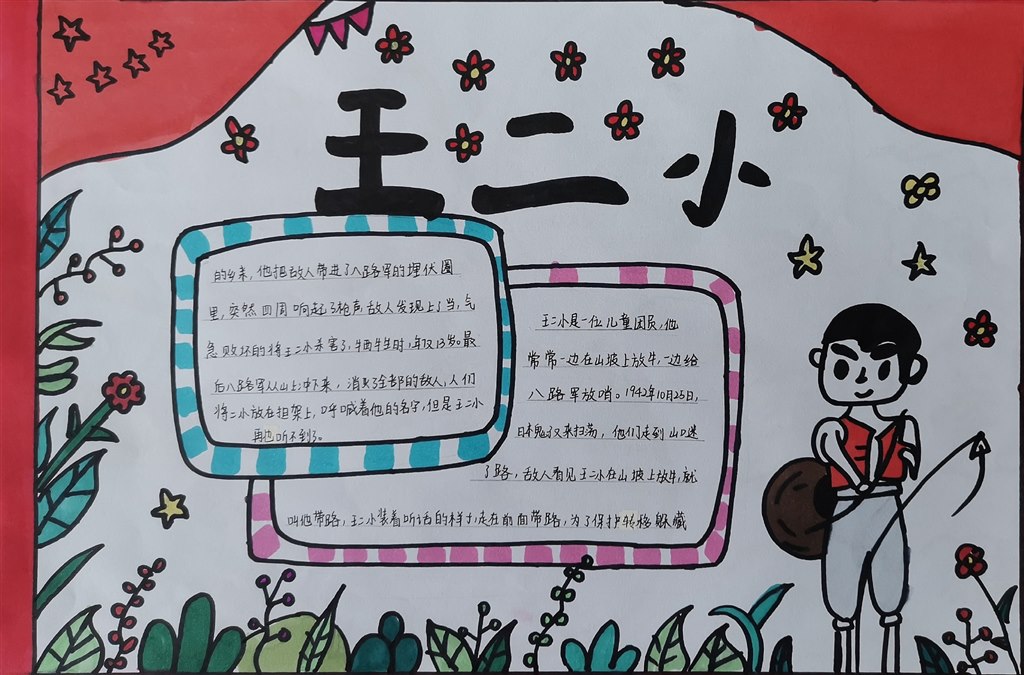 王二小
王二小是一位儿童团员,他
常常一边在山坡上放牛,一边给
八路军放哨。1942年10月25日,
日本鬼子又来扫荡,他们走到山口迷
了路,敌人看见王二小在山坡上放牛,就
叫他带路,王二小装着听话的样子走在前面带路,为了保护转移躲藏
的乡亲,他把敌人带进了八路军的埋伏圈
里,突然四周响起了枪声,敌人发现上了当,气
急败坏的将王二小杀害了,牺牲时,年仅13岁。最
后八路军从山上冲下来,消灭了全部的敌人,人们
将二小放在担架上,呼喊着他的名字,但是王二小
再也听不到了。